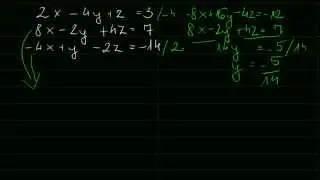 2x -4y +z = 3 /-4 -8x+16y-4z=-12
8x -2y +4z = 7 8x-2y +4z= 7
-4x+y -2z = -14 /2 14y = -5 /14
y = -5/14